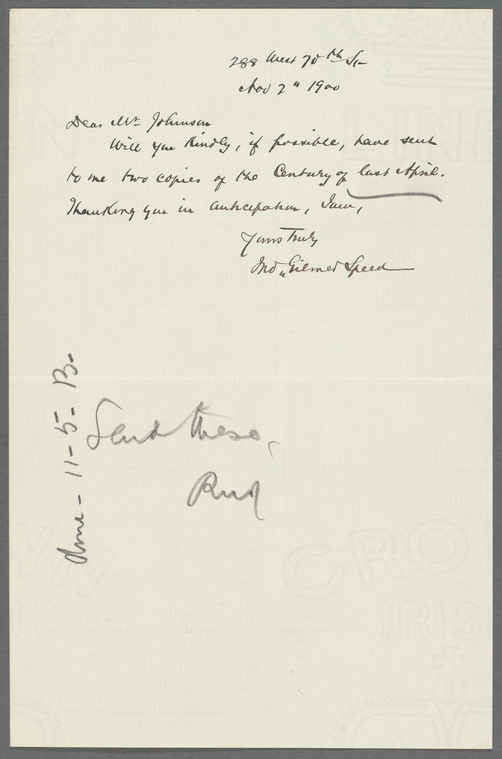 288 West 70th St
Nov 2" 1900
Dear Mr Johnson
Will you kindly, if possible, have sent
to me two copies of the Century of last April.
Thanking you in anticipation, I am,
Yours Truly
Jno. Gilmer Speed
Send these,
done - 11-5- B.
CRO
IRIS